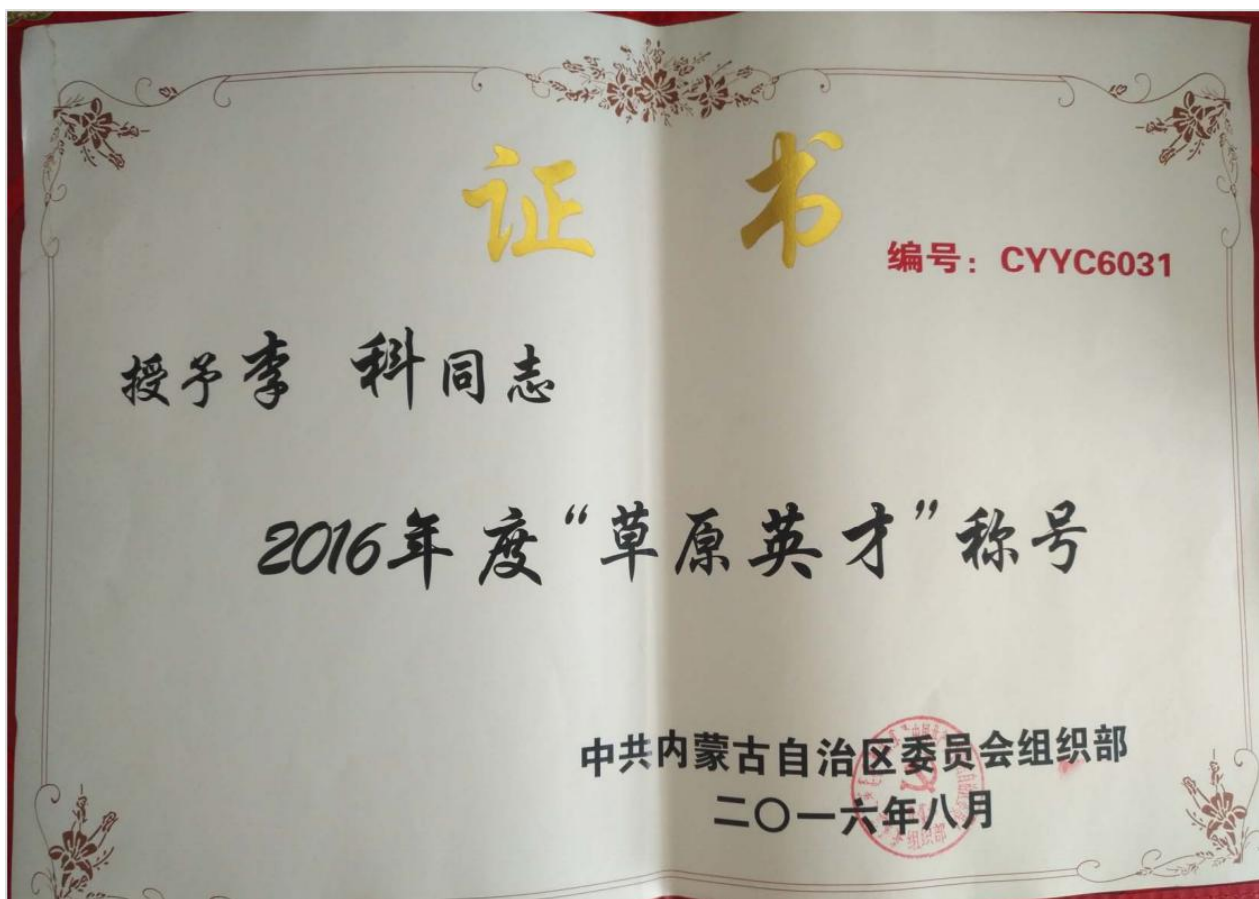 证 书
编号：CYYC6031
授予李 科同志
2016年度“草原英才”称号
中共内蒙古自治区委员会组织部
二〇一六年八月
组织部